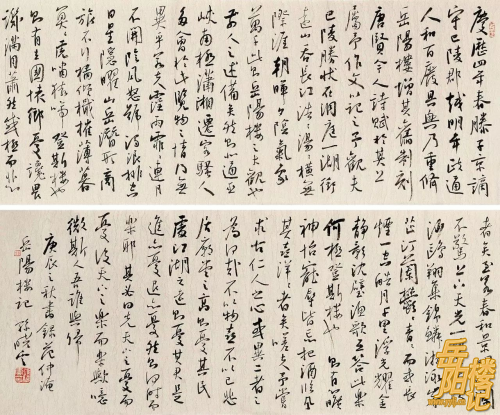 慶曆四年春滕子京謫
守巴陵郡越明年政通
人和百廢具興乃重脩
岳陽樓增其舊制刻
唐賢今人詩賦於其上
屬予作文以記之予觀夫
巴陵勝狀在洞庭一湖銜
遠山吞長江浩浩湯湯橫無
際涯朝暉夕陰氣象
萬千此則岳陽樓之大觀也
前人之述備矣然則北通巫
峽南極瀟湘遷客騷人
多會於此覽物之情得無
異乎若夫霪雨霏霏連月
不開陰風怒號濁浪排空
日星隱曜山岳潛形商
旅不行檣傾楫摧薄暮
冥冥虎嘯猿啼登斯樓也
則有去國懷鄉憂讒畏
譏滿目蕭然感極而悲
者矣至若春和景明波瀾
不驚上下天光一碧萬頃
沙鷗翔集錦鱗游泳岸
芷汀蘭鬱鬱青青而或長
煙一空皓月千里浮光耀金
靜影沈璧漁歌互答此樂
何極登斯樓也則有心曠
神怡寵辱皆忘把酒臨風
其喜洋洋者矣嗟夫予嘗
求古仁人之心或異二者之
為何哉不以物喜不以己悲
居廟堂之高則憂其民
處江湖之遠則憂其君是
進亦憂退亦憂然則何時而
樂耶其必曰先天下之憂而
憂後天下之樂而樂歟噫
微斯人吾誰與歸
庚辰秋書錄范仲淹
岳陽樓記 孫曉雲
岳阳楼记